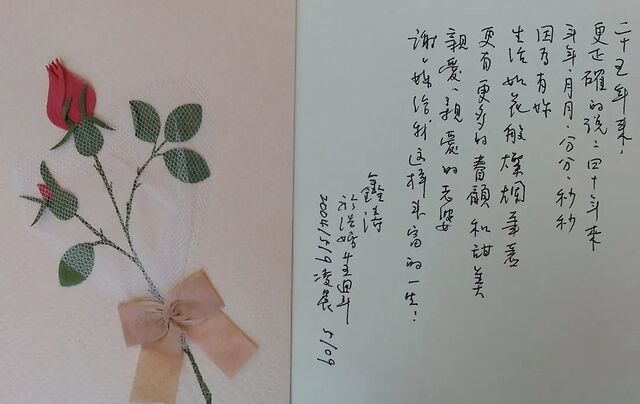 二十五年來，
更正確的說：四十年來
年年，月月，分分，秒秒
因為有妳
生活如花般燦爛
更有更多的眷顧和甜美
親愛、親愛的老婆
謝謝妳給我這樣豐富的一生！
鑫濤
於結婚廿五週年
2004/5/9 凌晨 5/09